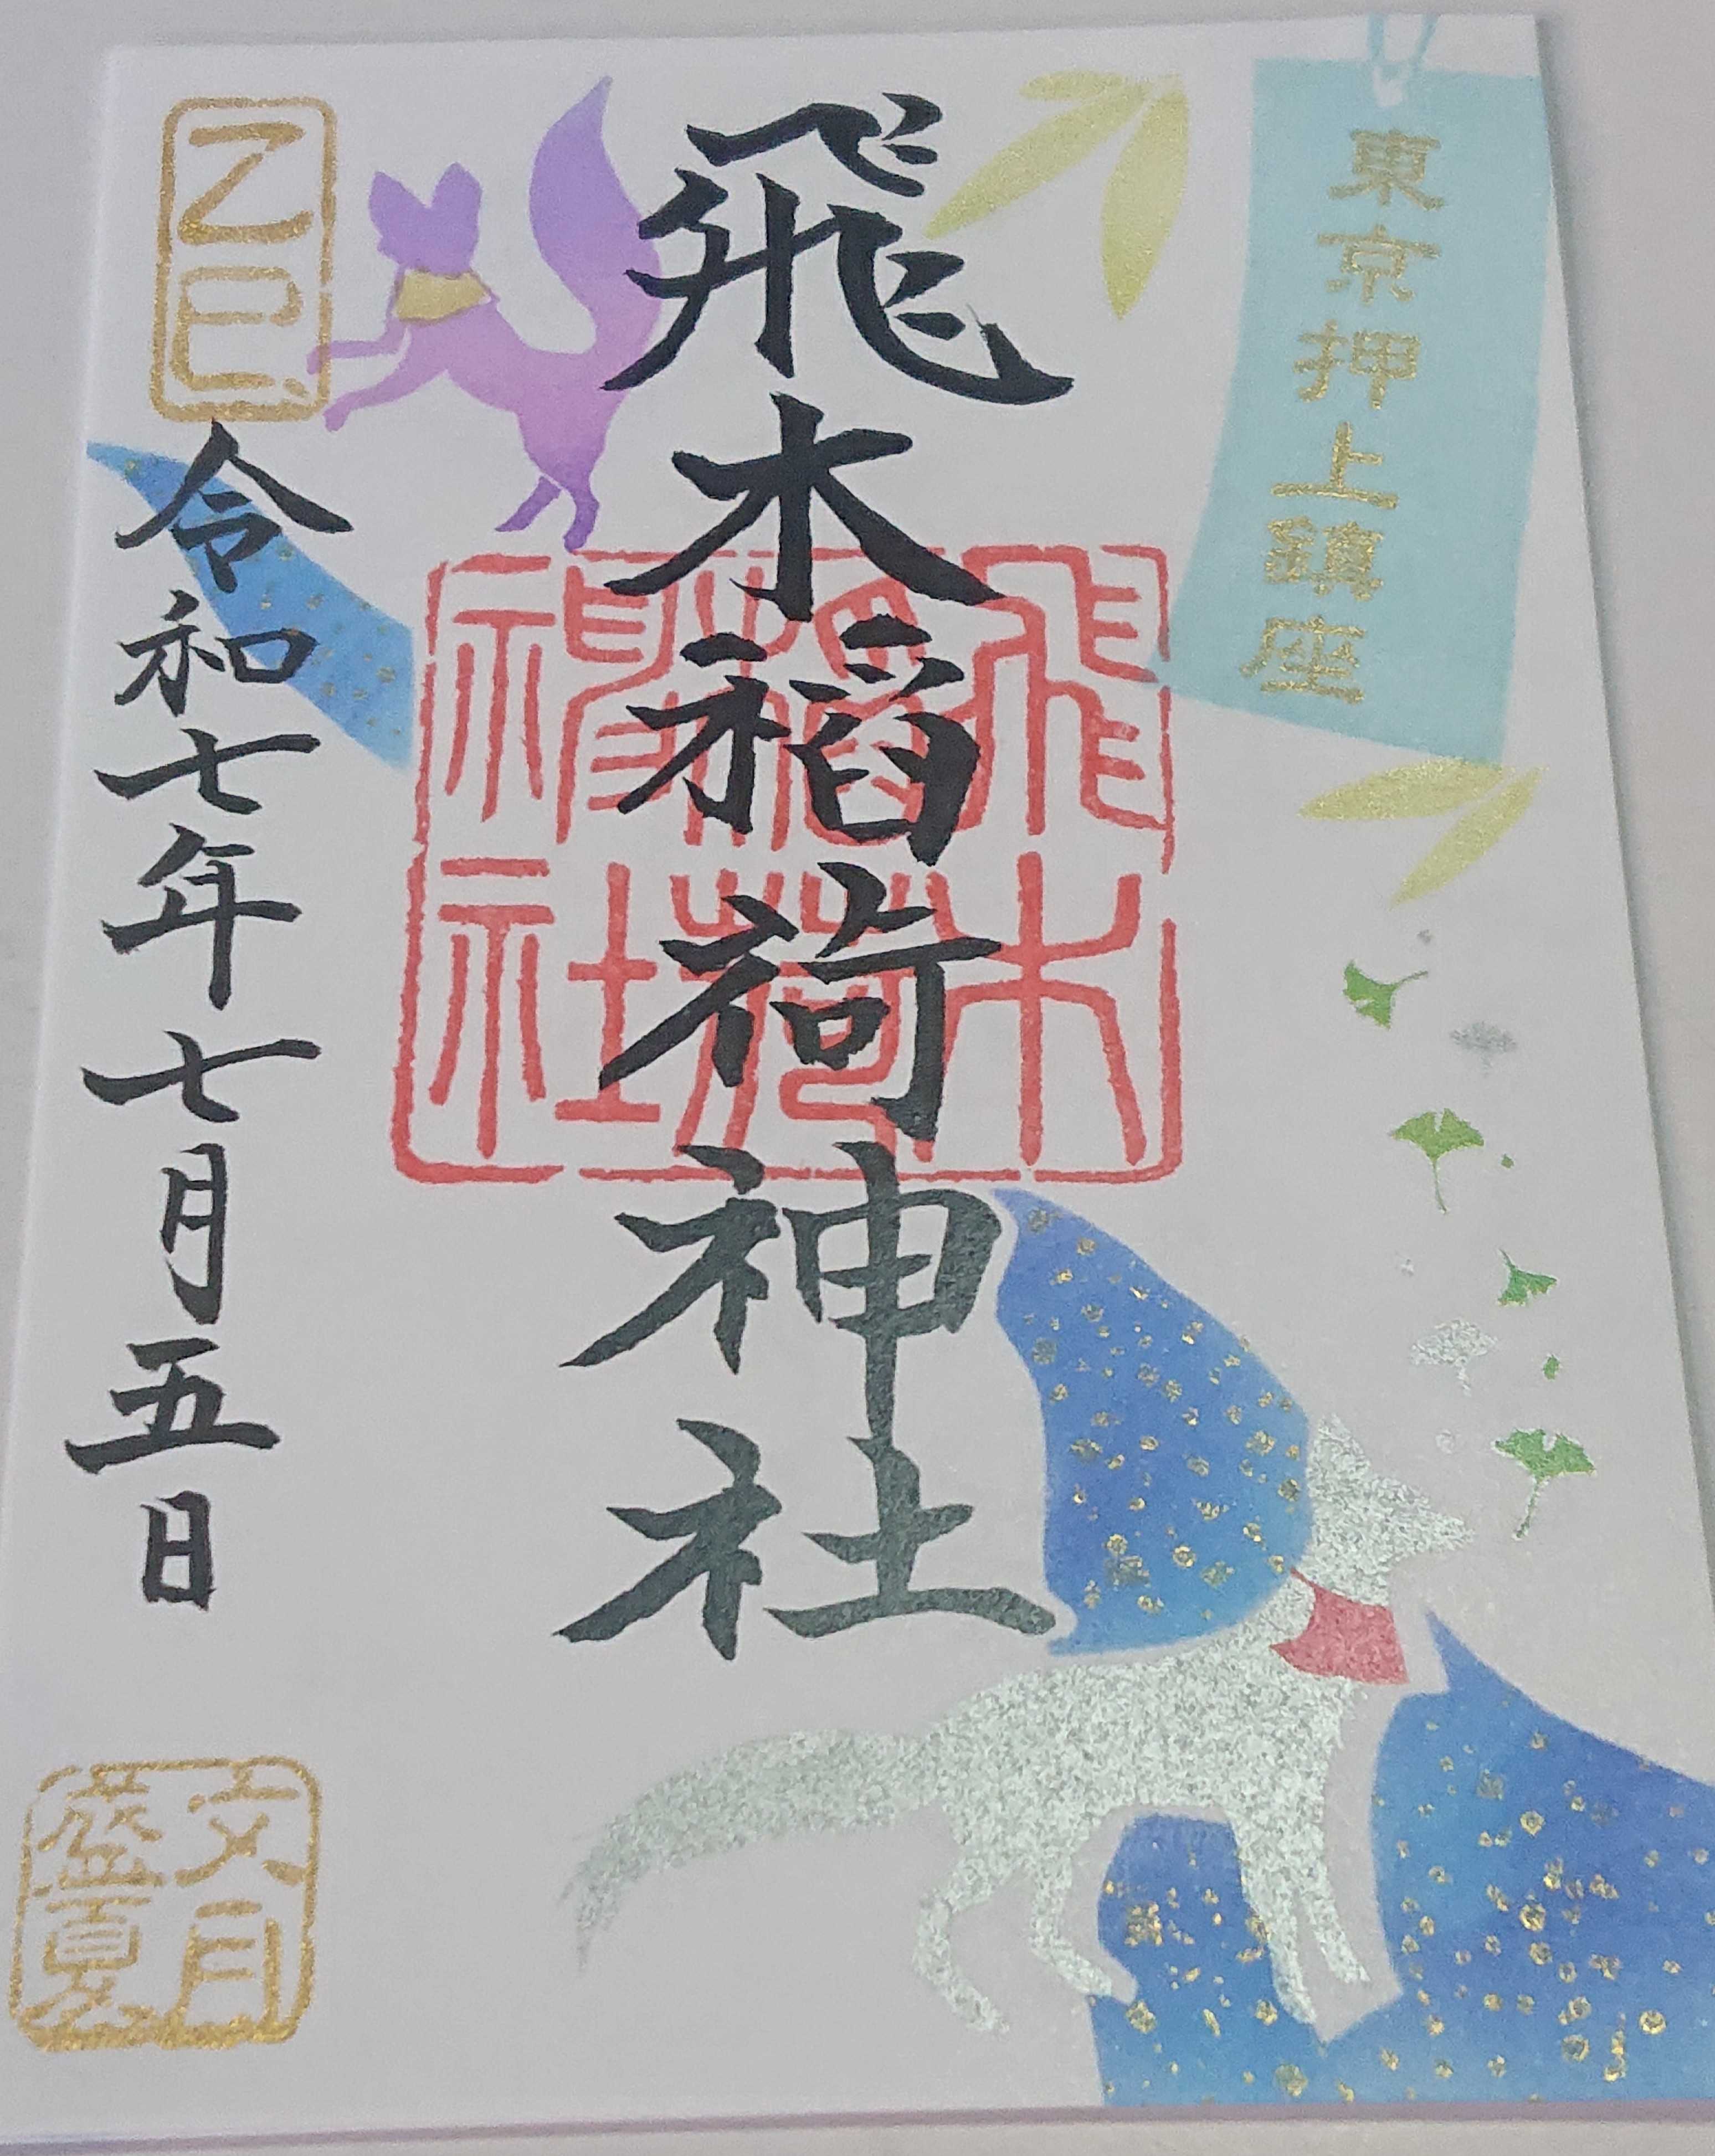 東京押上鎮座
飛木稲荷神社
飛木
稲荷
神社
乙巳
令和七年七月五日
文月
盛夏